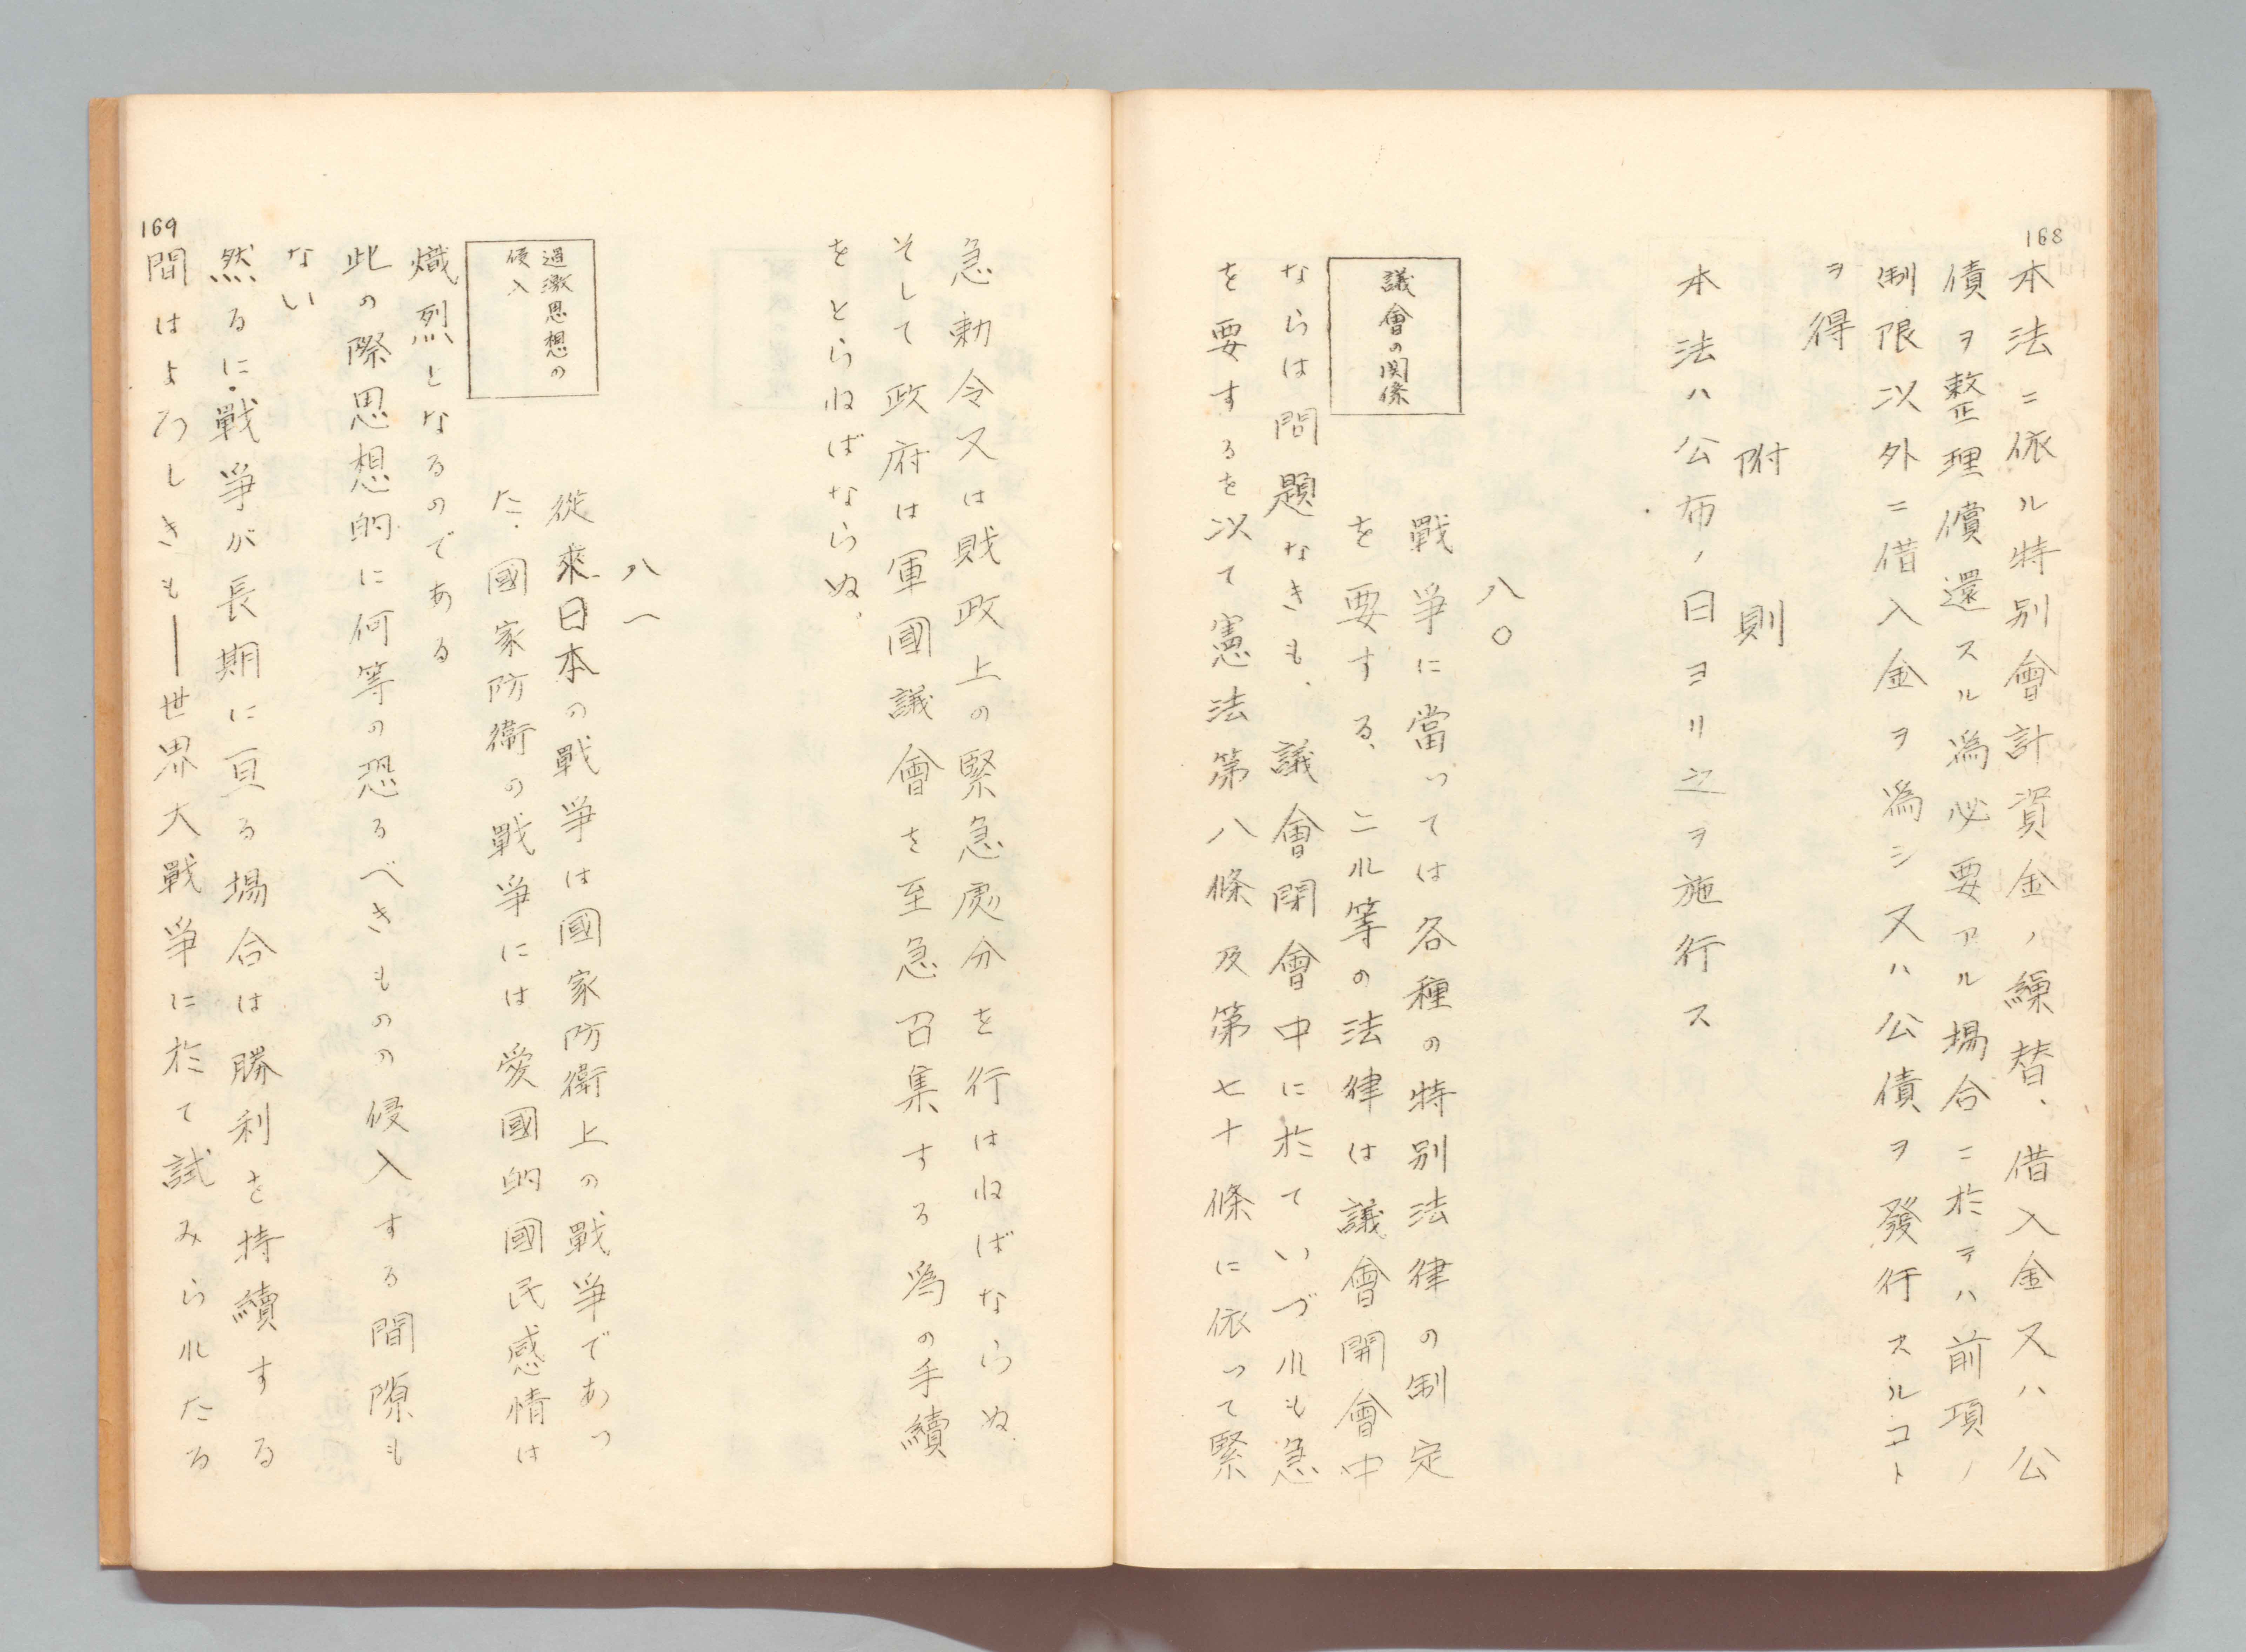 168
本法ニ依ル特別會計資金ノ繰替、借入金又ハ公
債ヲ整理償還スル為必要アル場合ニ於テハ前項ノ
制限以外ニ借入金ヲ為シ又ハ公債ヲ發行スルコト
ヲ得
附則
本法ハ公布ノ日ヨリ之ヲ施行ス
八〇
議會の関係
戰爭に當つては各種の特別法律の制定
を要する、これ等の法律は議會開會中
ならは問題なきも、議會閉會中に於ていづれも急
を要するを以て憲法第八條及第七十條に依つて緊
急勅令又は財政上の緊急處分を行はねばならぬ、
そして政府は軍國議會を至急召集する為の手續
をとらねばならぬ、
八一
過激思想の
侵入
從来日本の戰爭は國家防衛上の戰爭であつ
た、國家防衛の戰爭には愛國的國民感情は
熾烈となるのである
此の際思想的に何等の恐るべきものの侵入する間隙も
ない
然るに、戰爭が長期に亘る場合は勝利を持續する
間はよろしきも―世界大戰爭に於て試みられたる
169